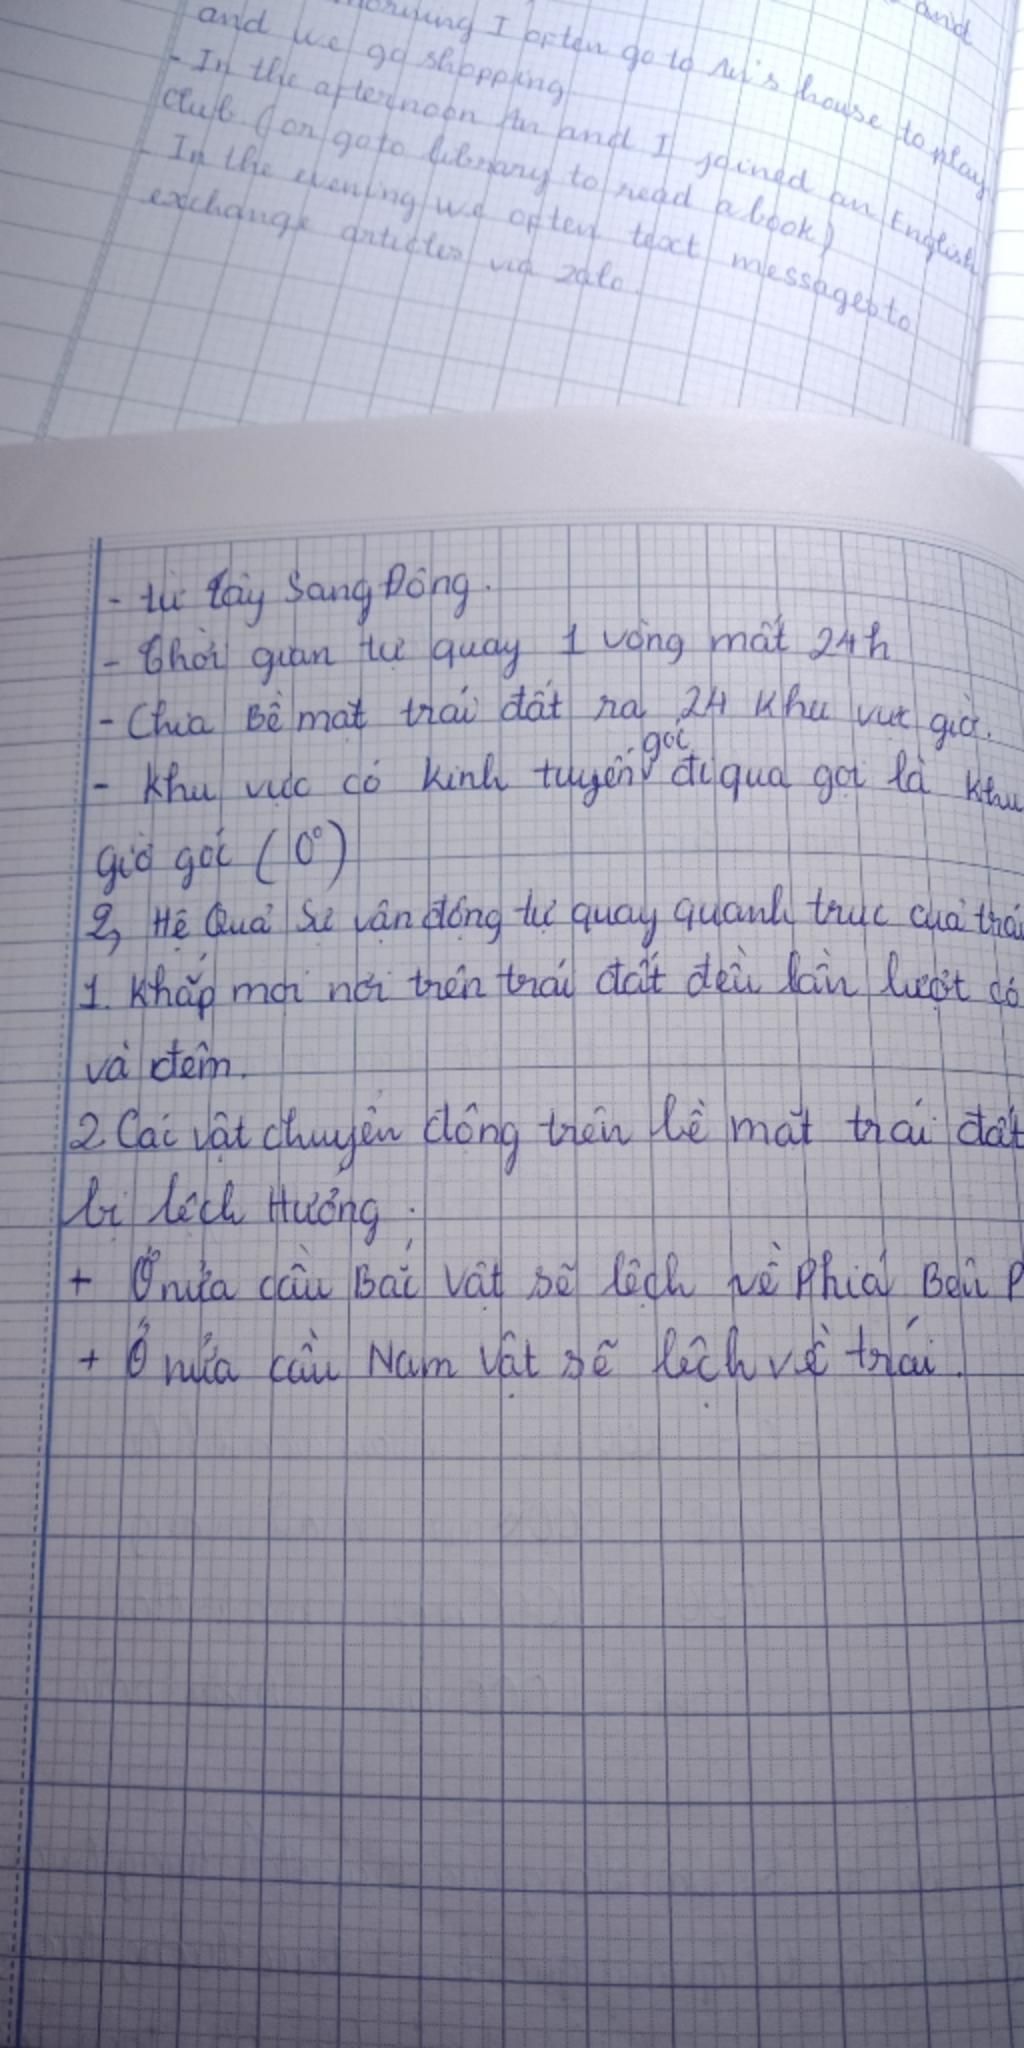 and
morning I often go to An's house to play
and we go shopping
- In the afternoon An and I joined an English
club (or go to library to read a book)
- In the evening we often text messages to
exchange articles via zalo.
- từ Tây Sang Đông.
- Thời gian tự quay 1 vòng mất 24h
- Chia Bề mặt trái đất ra 24 khu vực giờ.
gốc
- khu vực có kinh tuyến đi qua gọi là khu
giờ gốc (0°)
2, Hệ Quả Sự vận động tự quay quanh trục của trái
1. Khắp mọi nơi trên trái đất đều lần lượt có
và đêm.
2. Các vật chuyển động trên bề mặt trái đất
bị lệch Hướng:
+ Ở nửa cầu Bắc Vật sẽ lệch về Phía Bên P
+ Ở nửa cầu Nam vật sẽ lệch về trái.